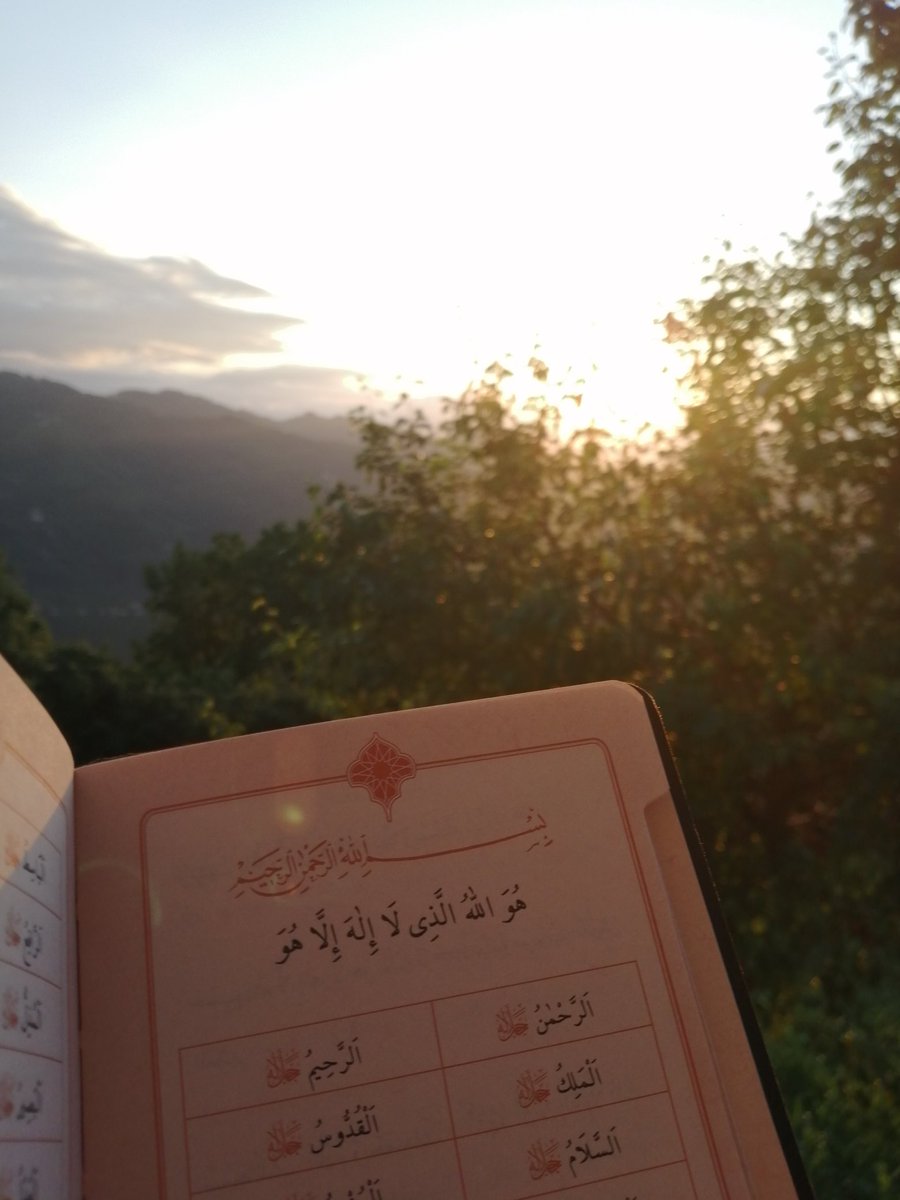 بِسْمِ اللهِ الرَّحْمٰنِ الرَّحِيمِ
هُوَ اللهُ الَّذِى لَا إِلٰهَ إِلَّا هُوَ
اَلرَّحْمٰنُ جل جلاله اَلرَّحِيمُ جل جلاله
اَلْمَلِكُ جل جلاله اَلْقُدُّوسُ جل جلاله
اَلسَّلَامُ جل جلاله